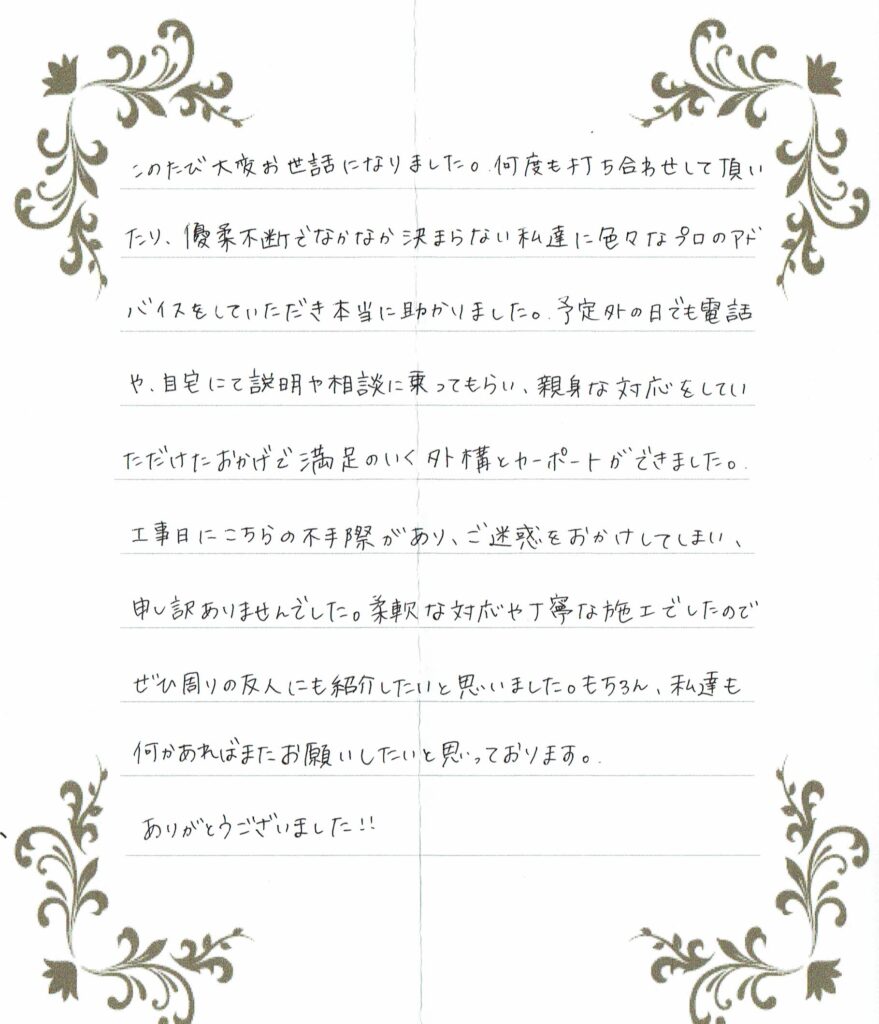 このたび大変お世話になりました。何度も打ち合わせして頂い
たり、優柔不断でなかなか決まらない私達に色々なプロのアド
バイスをしていただき本当に助かりました。予定外の日でも電話
や、自宅にて説明や相談に乗ってもらい、親身な対応をしてい
ただけたおかげで満足のいく外構とカーポートができました。
工事日にこちらの不手際があり、ご迷惑をおかけしてしまい、
申し訳ありませんでした。柔軟な対応や丁寧な施工でしたので
ぜひ周りの友人にも紹介したいと思いました。もちろん、私達も
何かあればまたお願いしたいと思っております。
ありがとうございました!!